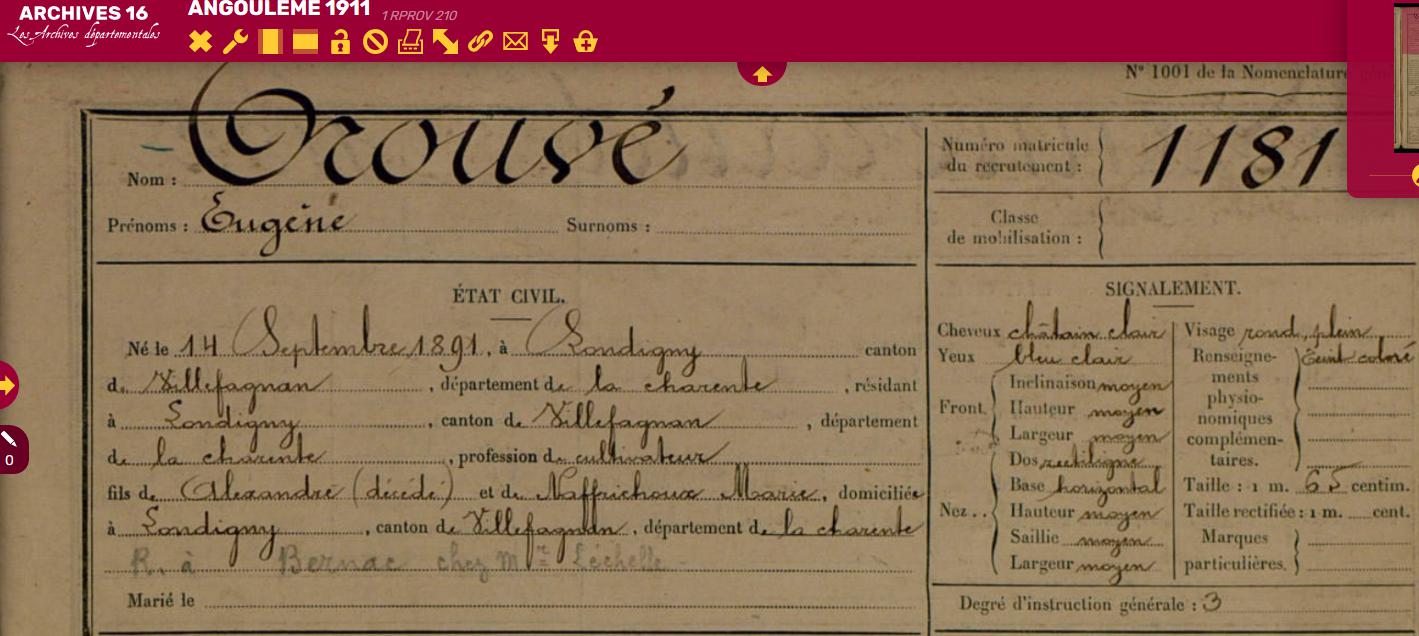 ARCHIVES 16
Les Archives départementales
ANGOULEME 1911 1 RPROV 210
N° 1001 de la Nomenclature
Nom : Trouvé
Prénoms : Eugène Surnoms :
Numéro matricule
du recrutement : 1181
Classe
de mobilisation :
ÉTAT CIVIL.
Né le 14 Septembre 1891, à Londigny canton
de Villefagnan, département de la charente, résidant
à Londigny, canton de Villefagnan, département
de la charente, profession de cultivateur
fils de Alexandre (décédé) et de Naffrichoux Marie, domiciliée
à Londigny, canton de Villefagnan, département de la charente
R. à Bernac chez Mr Léchelle
Marié le
SIGNALEMENT.
Cheveux châtain clair
Yeux bleu clair
Front.
Inclinaison moyen
Hauteur moyen
Largeur moyen
Nez..
Dos rectiligne
Base horizontal
Hauteur moyen
Saillie moyen
Largeur moyen
Visage rond, plein
Renseigne-
ments
physio-
nomiques
complémen-
taires.
Teint coloré
Taille : 1 m. 65 centim.
Taille rectifiée : 1 m. cent.
Marques
particulières.
Degré d'instruction générale : 3
0